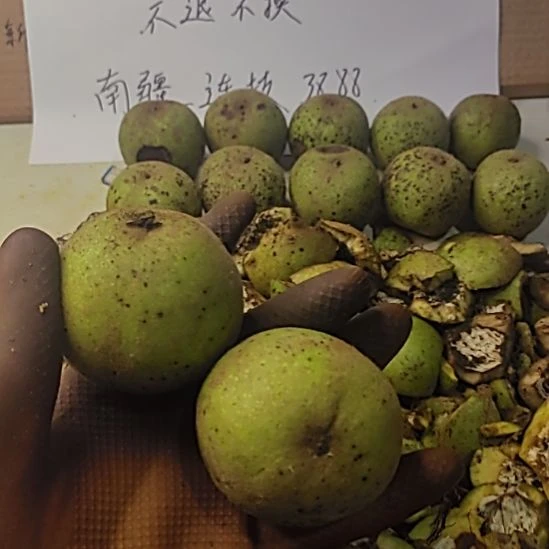 不退不换
南疆_连核_3888